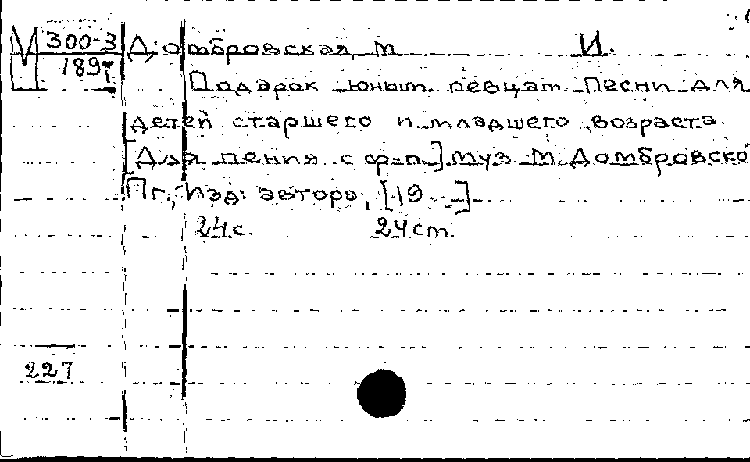 М 300-3 Домбровская, М. И.
1897
Подарок юным певцам. Песни для
детей старшего и младшего возраста
[Для пения с ф-п.] муз М. Домбровско
Пг., Изд. автора, [19 --]
24с. 24см.
227